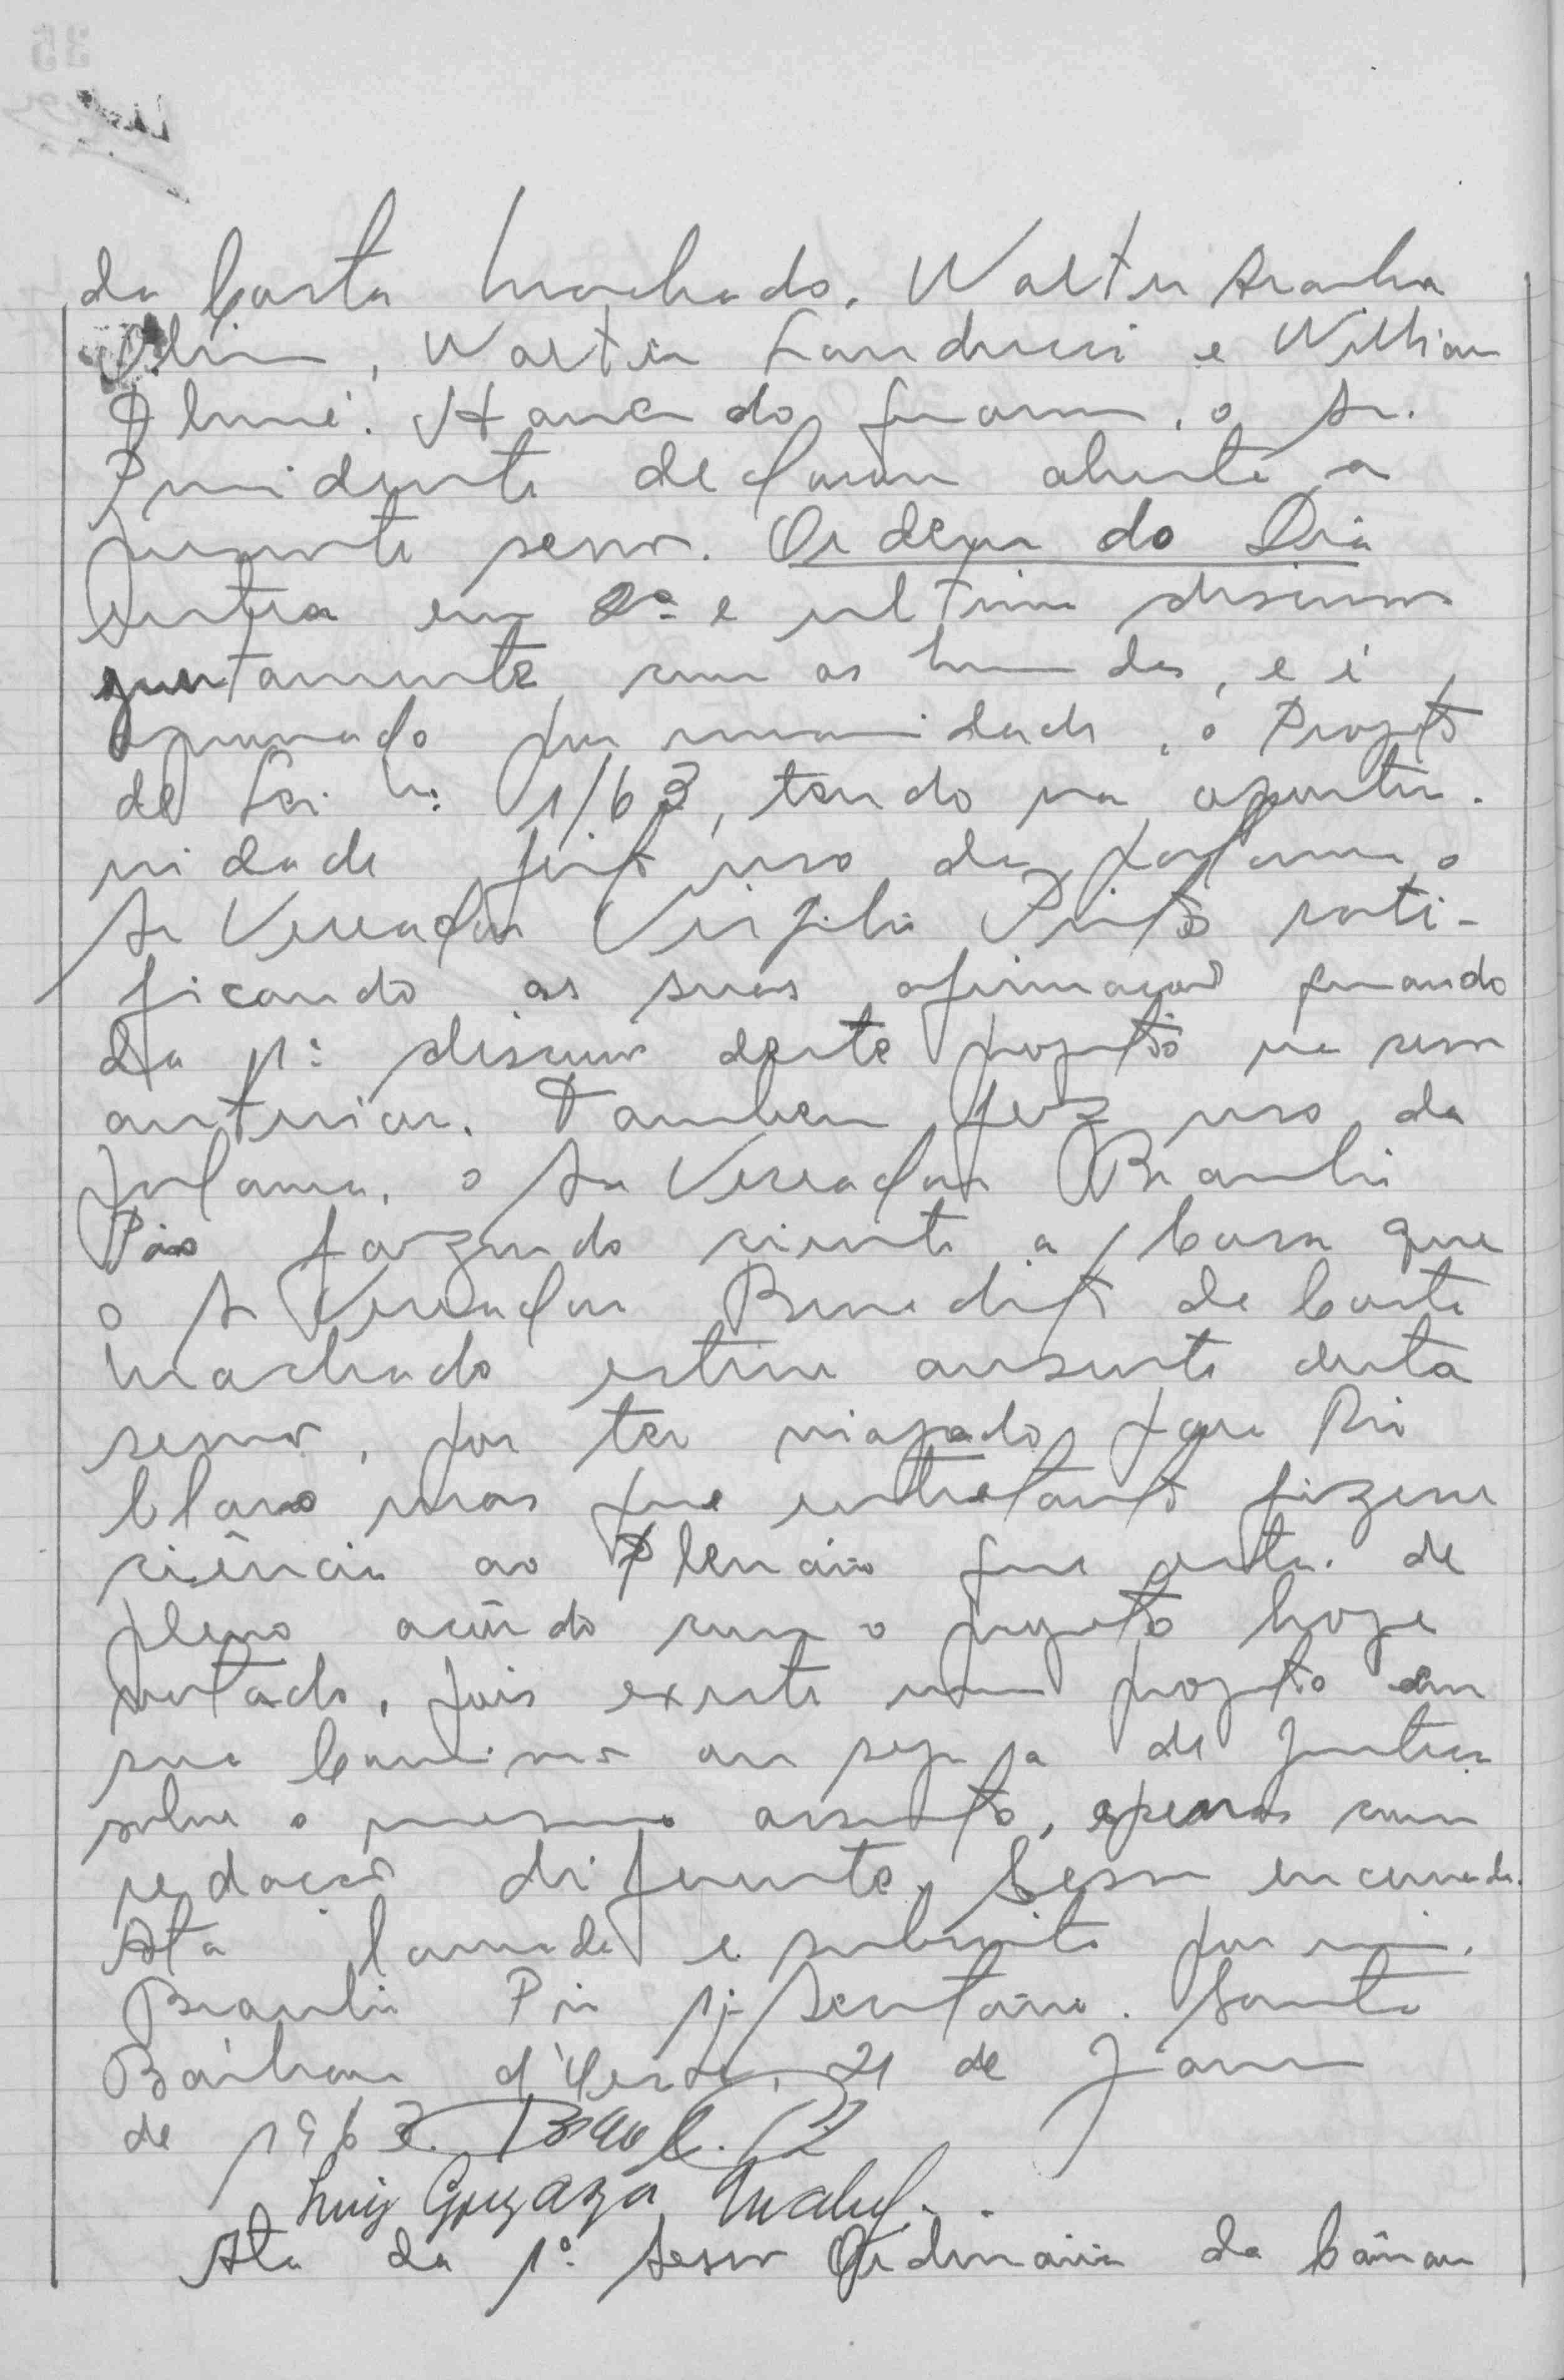 da Costa Machado, Walter Aranha
, Walter Landucci e Willian
. Havendo , o Sr.
Presidente declarou aberta a
presente sessão. Ordem do Dia
Entra em 2ª e ultima discussão
juntamente com as emendas, e é
aprovado por unanimidade, o Projeto
de Lei nº 1/63, tendo na oportu-
nidade feito uso da palavra o
Sr Vereador Virgilio Pinto rati-
ficando as suas afirmações quando
da 1ª discussão deste projeto na sessão
anterior. Tambem fez uso da
palavra, o Sr Vereador Braulio
Pio fazendo ciente a Casa que
o Sr Vereador Benedito da Costa
Machado esteve ausente desta
sessão, por ter viajado para Rio
Claro mas que entretanto fizesse
ciência ao Plenário que está de
pleno acôrdo com o projeto hoje
votado, pois existe um projeto em
sua Comissão ou seja a de Justiça
sobre o mesmo assunto, apenas com
redação diferente. Sessão encerrada.
Ata lavrada e subscrita por mim,
Braulio Pio 1º Secretário. Santa
Bárbara d'Oeste, 21 de Janeiro
de 1963.
Luiz Gonzaga
Ata da 1ª Sessão Ordinária da Câmara